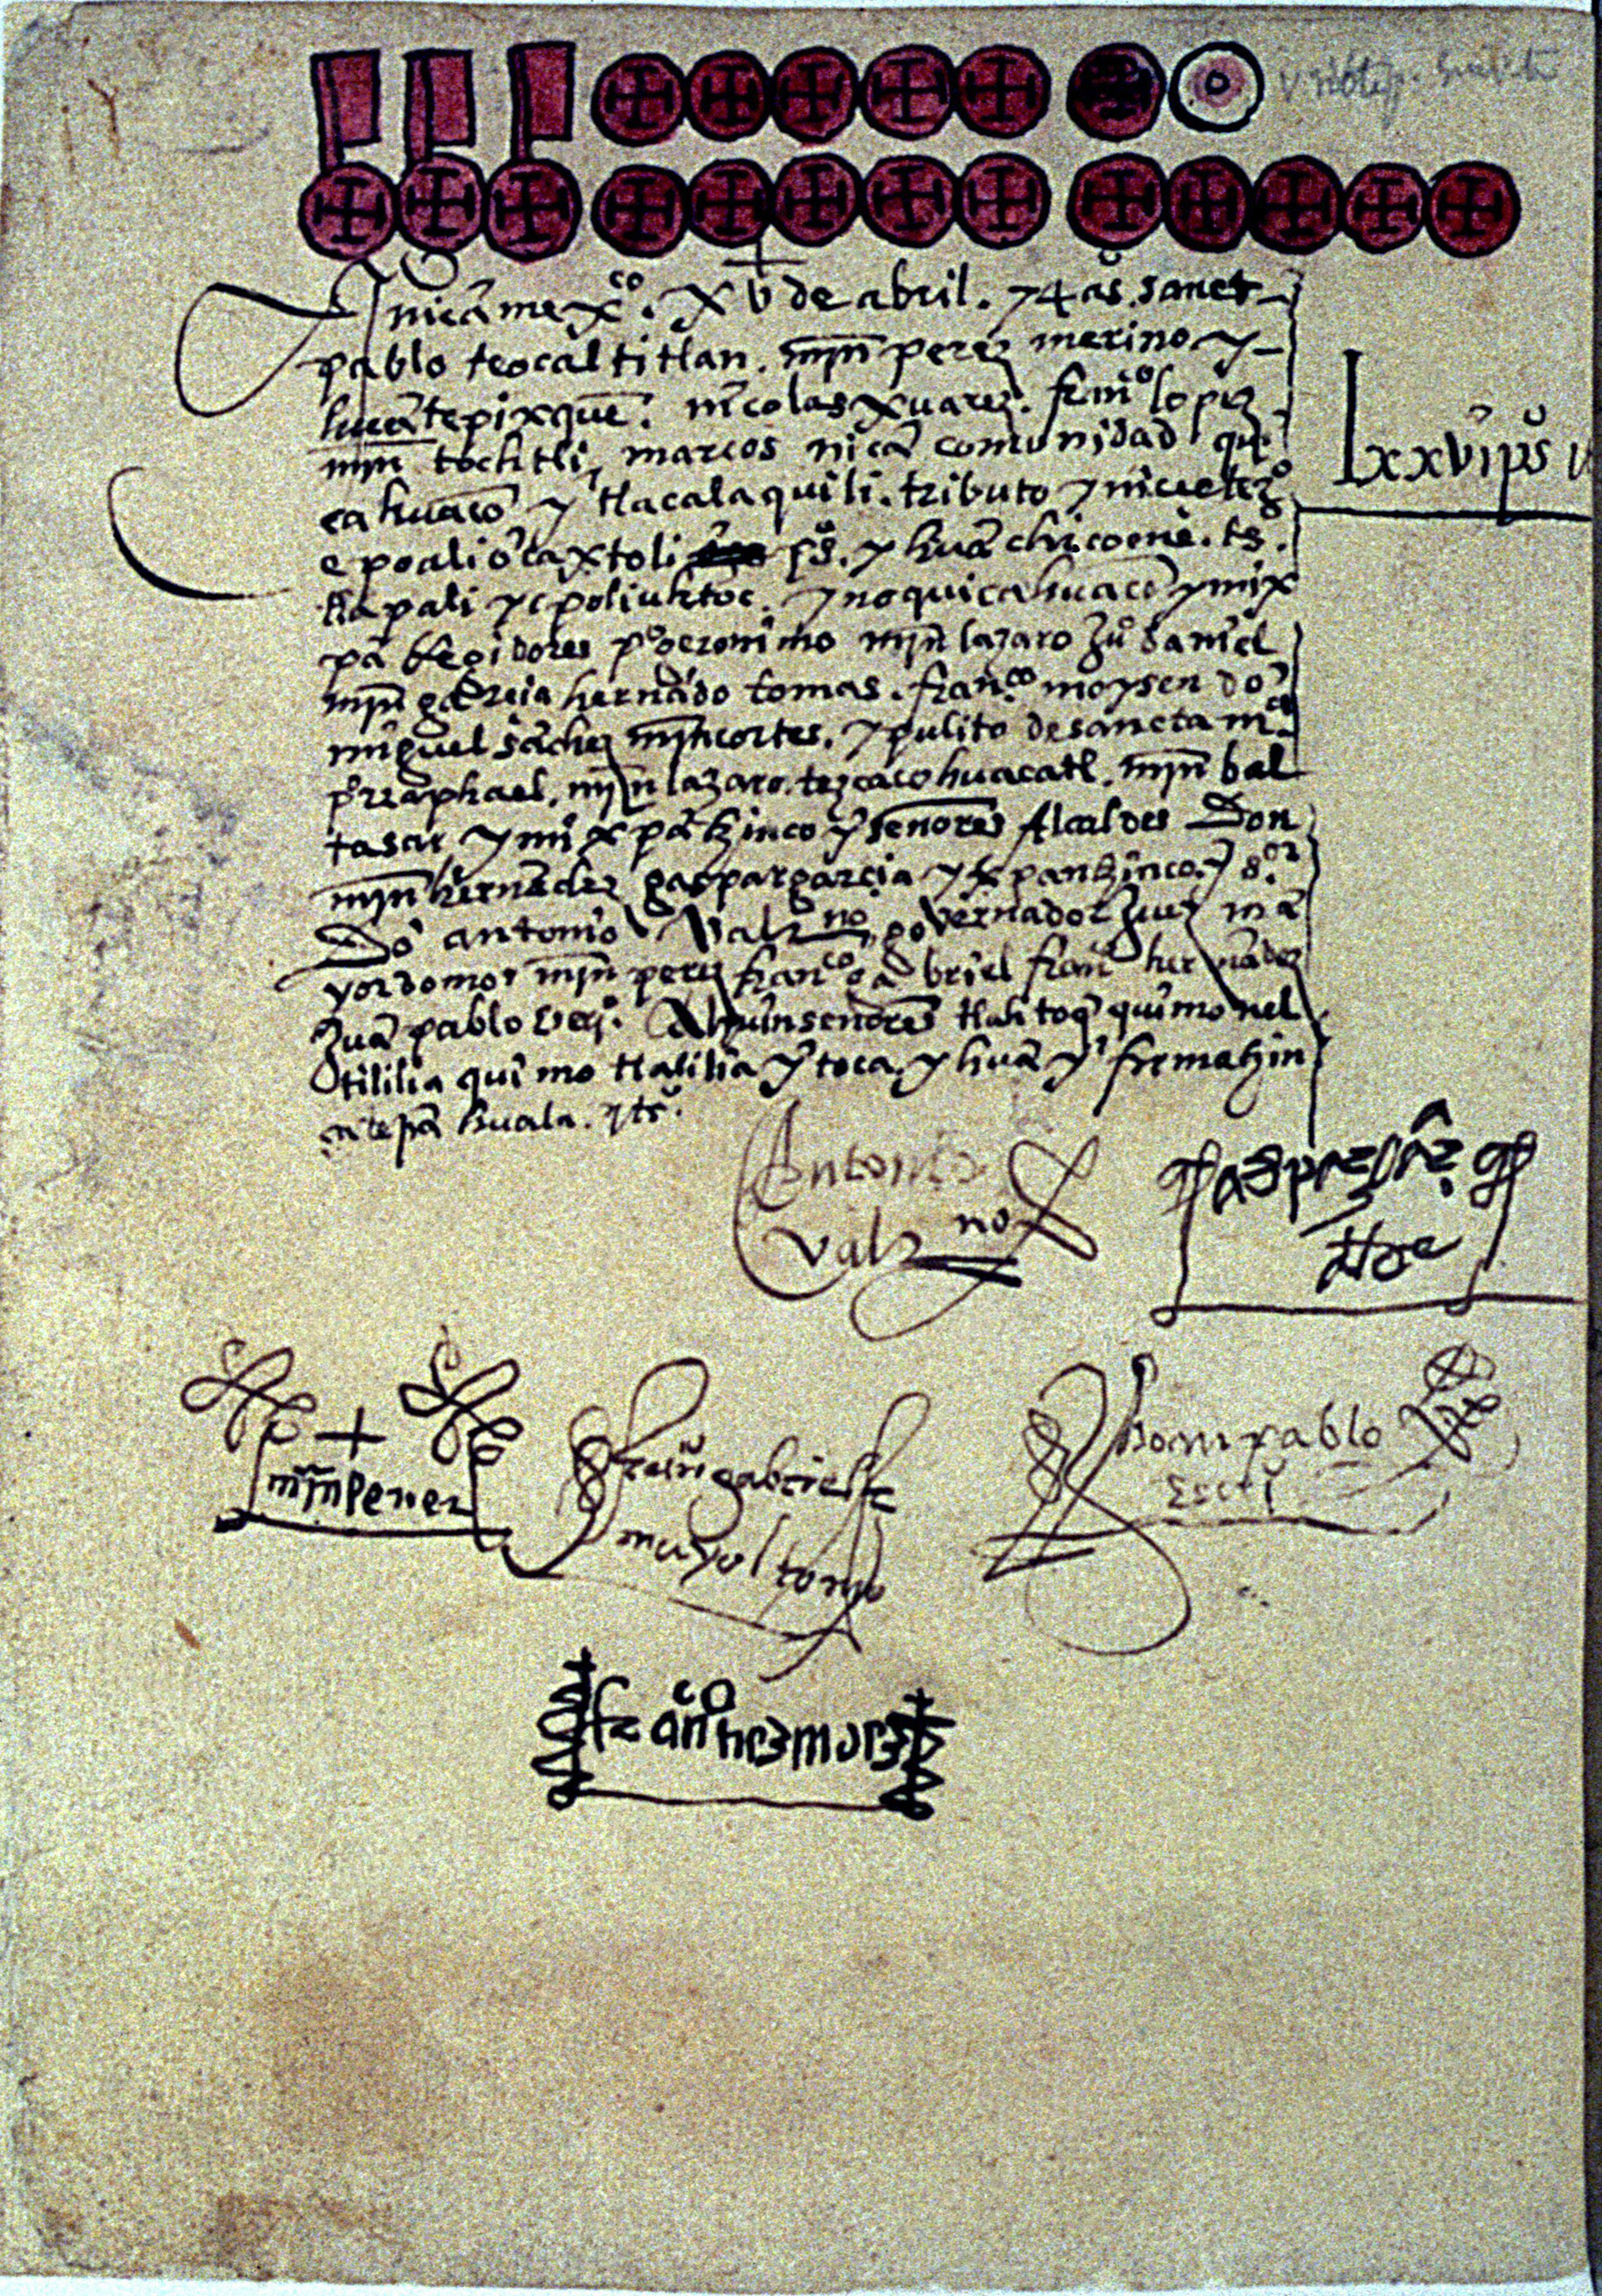 Inicā mexco. XV de abril. 74 aᵒs. sanct
pablo teocaltitlan. mȷn perez merino y
huā tepixque. nicolas xuarez. franco lopez
mȷn tochtli, marcos nicā comunidad qui
cahuaco y tlacalaquili. tributo
epoali ō caxtoli ps. yhuā chicome. ts.
tlapali yc poliuhtoc. yno quicahuaco ymix
pā Regidores po geronimo mȷn lazaro Juo daniel
mȷn garcia hernādo tomas. franco moysen do
miguel sāchez mȷn cortes. ypolito de sancta ma
po raphael. mȷn lazaro. tezcacohuacatl. mȷn bal
tasar ymixpātzinco y señores Alcaldes Don
mȷn hernādez gaspar garcia yxpantzinco. y sor
Dō antonio Valrno governador Juez ma
yordomos mȷn perez franco gabriel franco hernādez
Juā pablo
Auh in señores tlahtoq quimonel
tililia quimo tlalilia ytoca. yhuā y firmatzin
tepā huala. ts.
Lxxvi ps v
Antonio
Valrno
mȷn Perez
franco gabriel
mayoltomo
Joan pablo